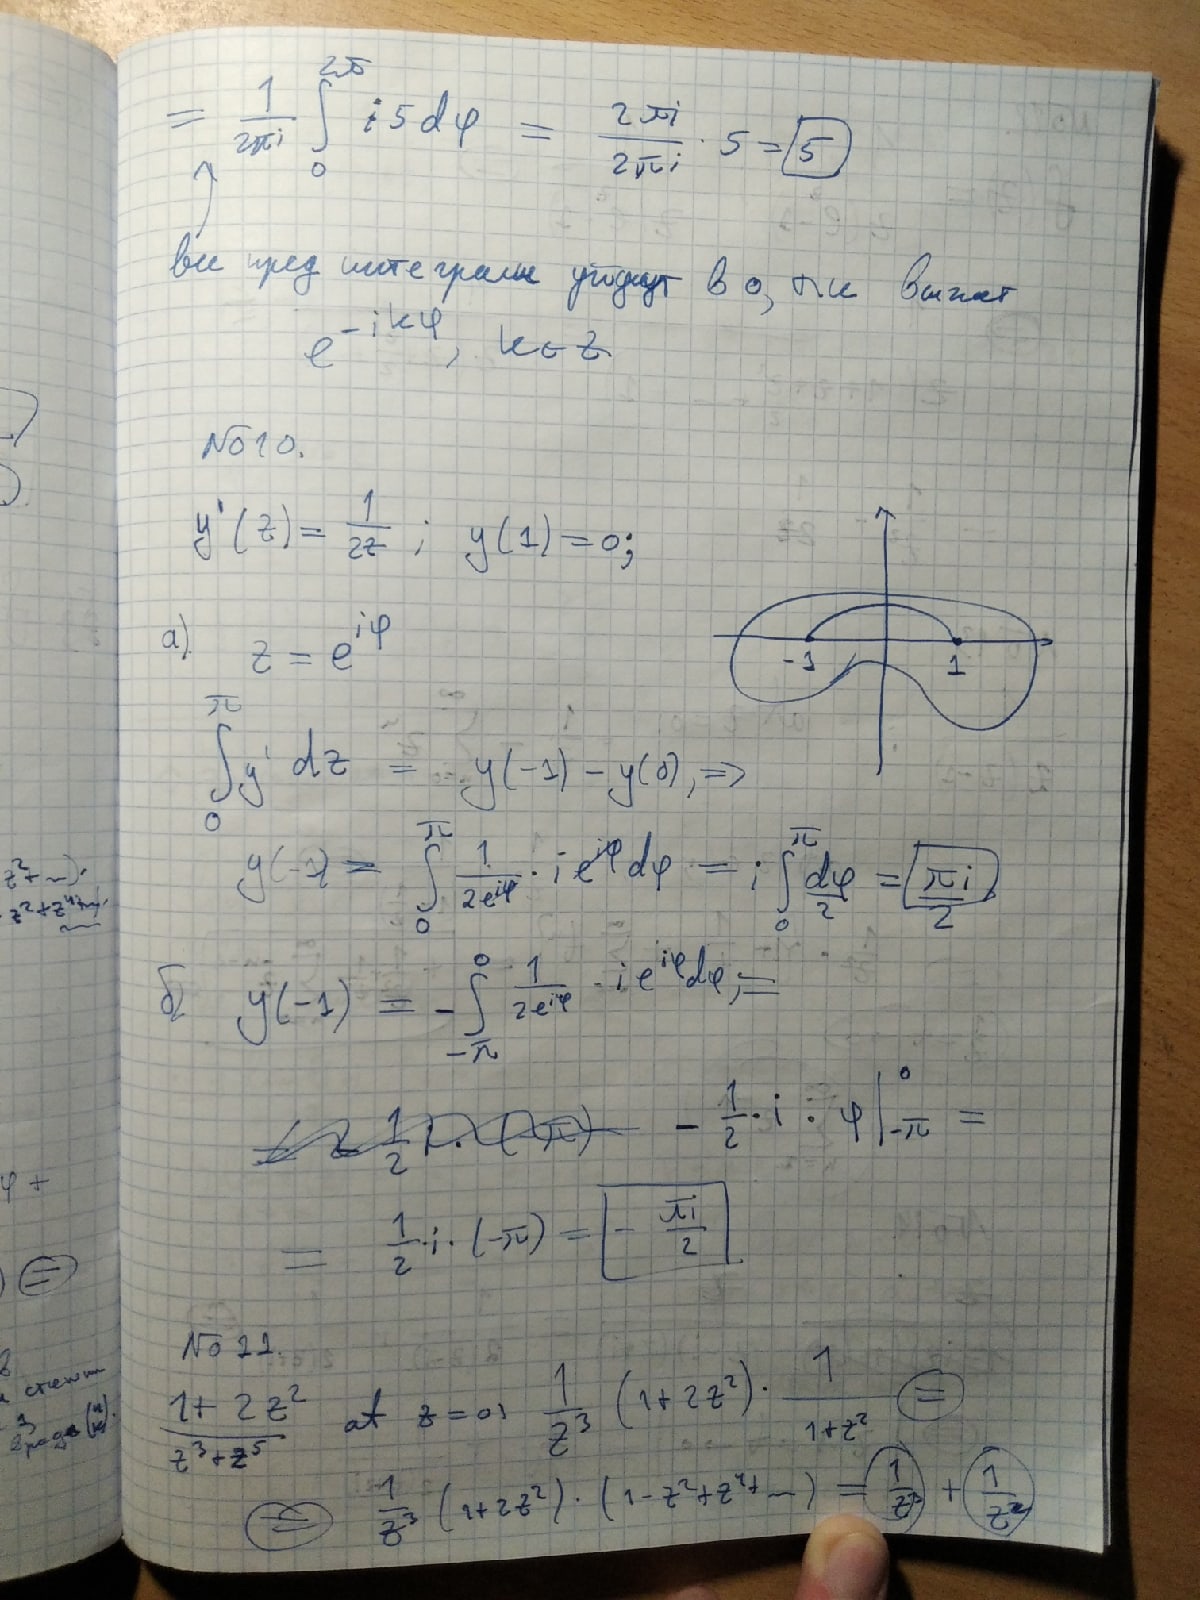 = 1/(2πi) ∫_0^{2π} i5dφ = 2πi/2πi · 5 = 5
все пред интегралы уйдут в 0, т.к
e^{-ikφ}, k∈Z
№10.
y'(z) = 1/2z ; y(1) = 0;
-1 1
а) z = e^{iφ}
∫_0^π y' dz = y(-1) - y(0), =>
y(-1) = ∫_0^π 1/(2e^{iφ}) · i e^{iφ} dφ = i ∫_0^π dφ/2 = πi/2
б) y(-1) = - ∫_{-π}^0 1/(2e^{iφ}) · i e^{iφ} dφ, =
- 1/2 · i : φ |_{-π}^0 =
= 1/2 · i · (-π) = - πi/2
№11.
(1 + 2z²)/(z³+z⁵) at z=0; 1/z³ (1+2z²) · 1/(1+z²) =
= 1/z³ (1+2z²) · (1-z²+z⁴+...) = 1/z³ + 1/z
z²+...).
z²+z⁴+...).
φ +
) =